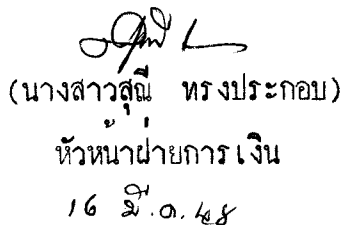 (นางสาวสุณี ทรงประกอบ)
หัวหน้าฝ่ายการเงิน
16 มี.ค. 48